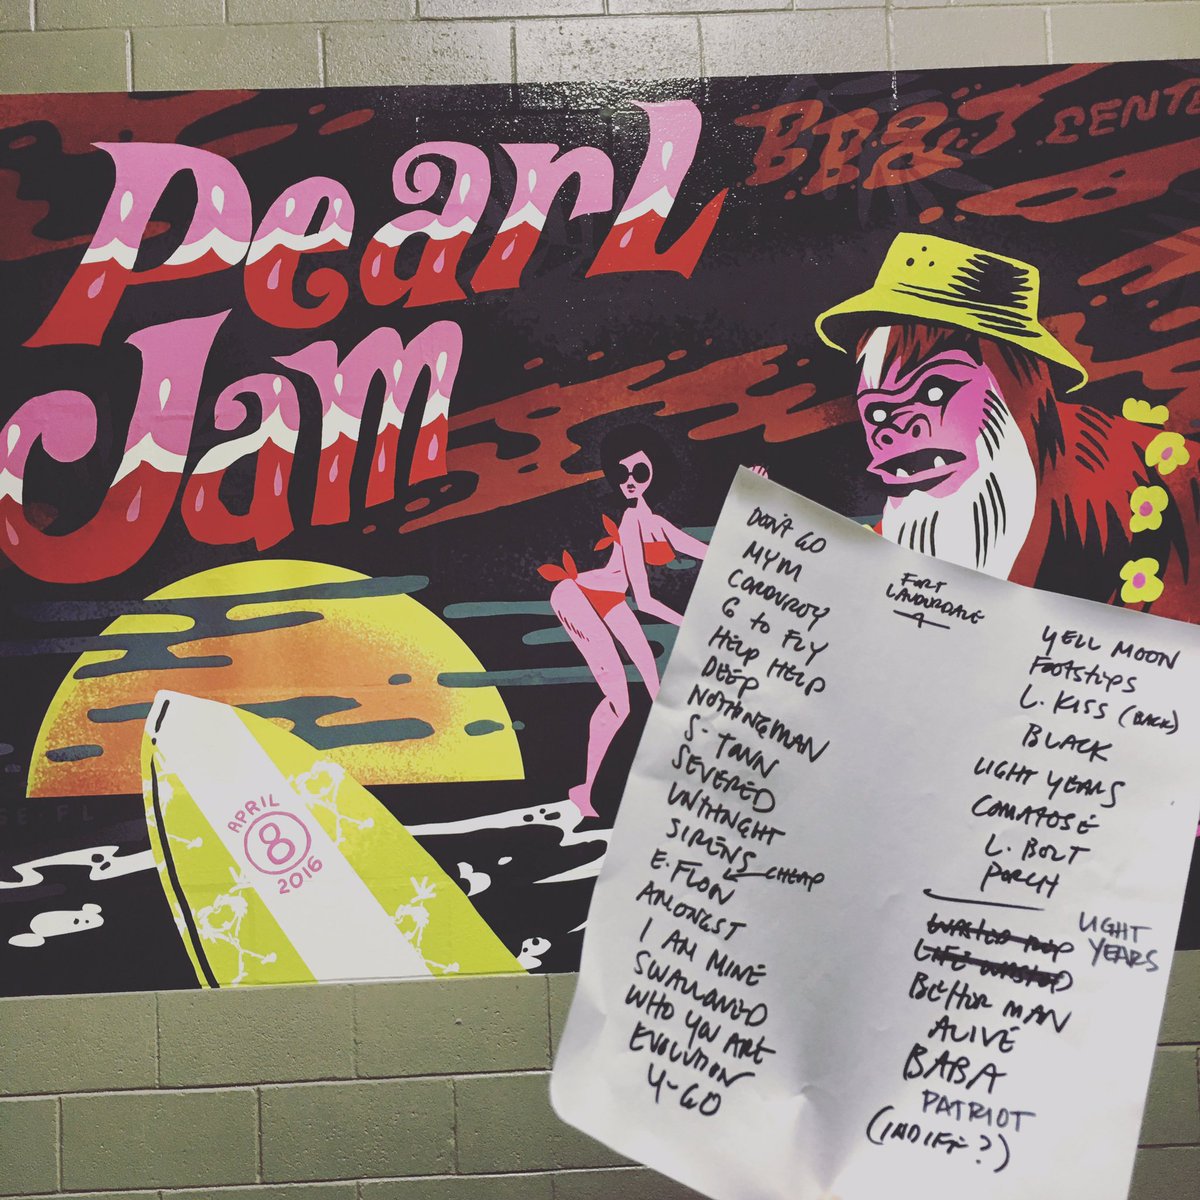 Pearl
Jam
BB&T CENTE
SE, FL
APRIL
8
2016
FORT
LAUDERDALE
DON'T GO
MYM
CORDUROY
G TO FLY
HELP HELP
DEEP
NOTHINGMAN
S-TOWN
SEVERED
UNTHNGHT
SIRENS CHEAP
E. FLOW
AMONGST
I AM MINE
SWALLOWED
WHO YOU ARE
EVOLUTION
Y-GO
YELL MOON
FOOTSTEPS
L. KISS (BACK)
BLACK
LIGHT YEARS
COMATOSE
L. BOLT
PORCH
LIGHT
YEARS
WASTED REP
LIFE WASTED
BETTER MAN
ALIVE
BABA
PATRIOT
(INDIFF?)